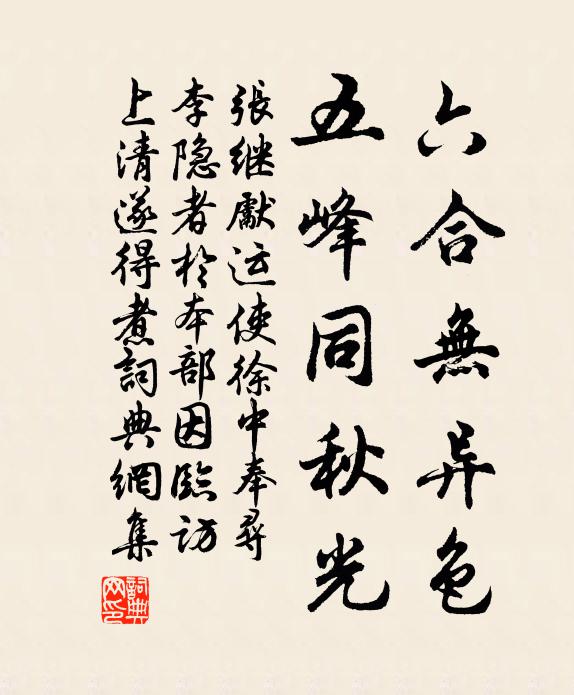 六合無异色
五峰同秋光
張继獻运使徐中奉尋
李隐者於本部因臨访
上清遂得煮詞典網集
詞典网印